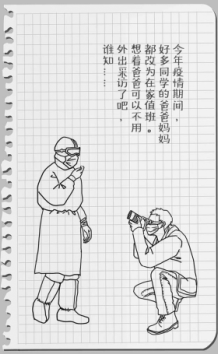 今年疫情期间，
好多同学的爸爸妈妈
都改为在家值班。
想着爸爸可以不用
外出采访了吧，
谁知……